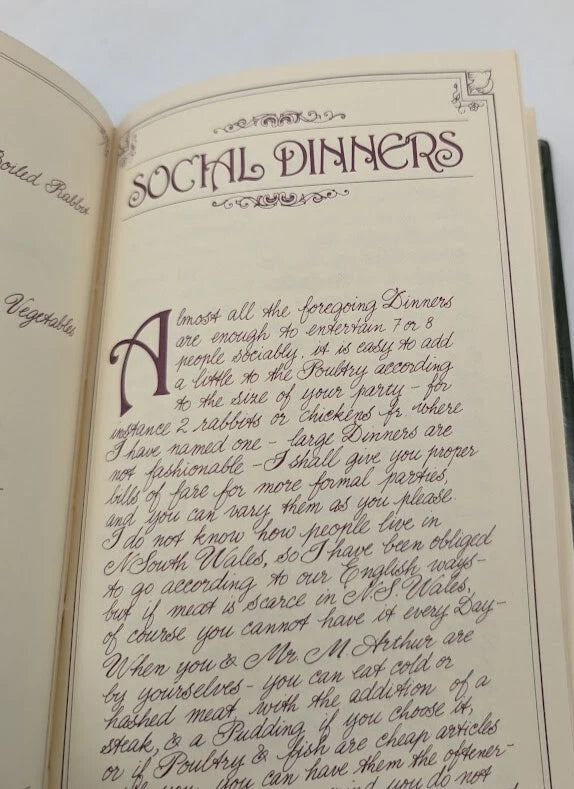 Boiled Rabbit
Vegetables
SOCIAL DINNERS
Almost all the foregoing Dinners
are enough to entertain 7 or 8
people sociably, it is easy to add
a little to the Poultry according
to the size of your party - for
instance 2 rabbits or chickens fr where
I have named one - large Dinners are
not fashionable - I shall give you proper
bills of fare for more formal parties,
and you can vary them as you please.
I do not know how people live in
N South Wales, so I have been obliged
to go according to our English ways-
but if meat is scarce in N.S. Wales,
of course you cannot have it every Day-
When you & Mr. M. Arthur are
by yourselves - you can eat cold or
hashed meat, with the addition of a
steak, & a Pudding if you choose it,
or if Poultry & fish are cheap articles
you can have them the oftener-
you do not